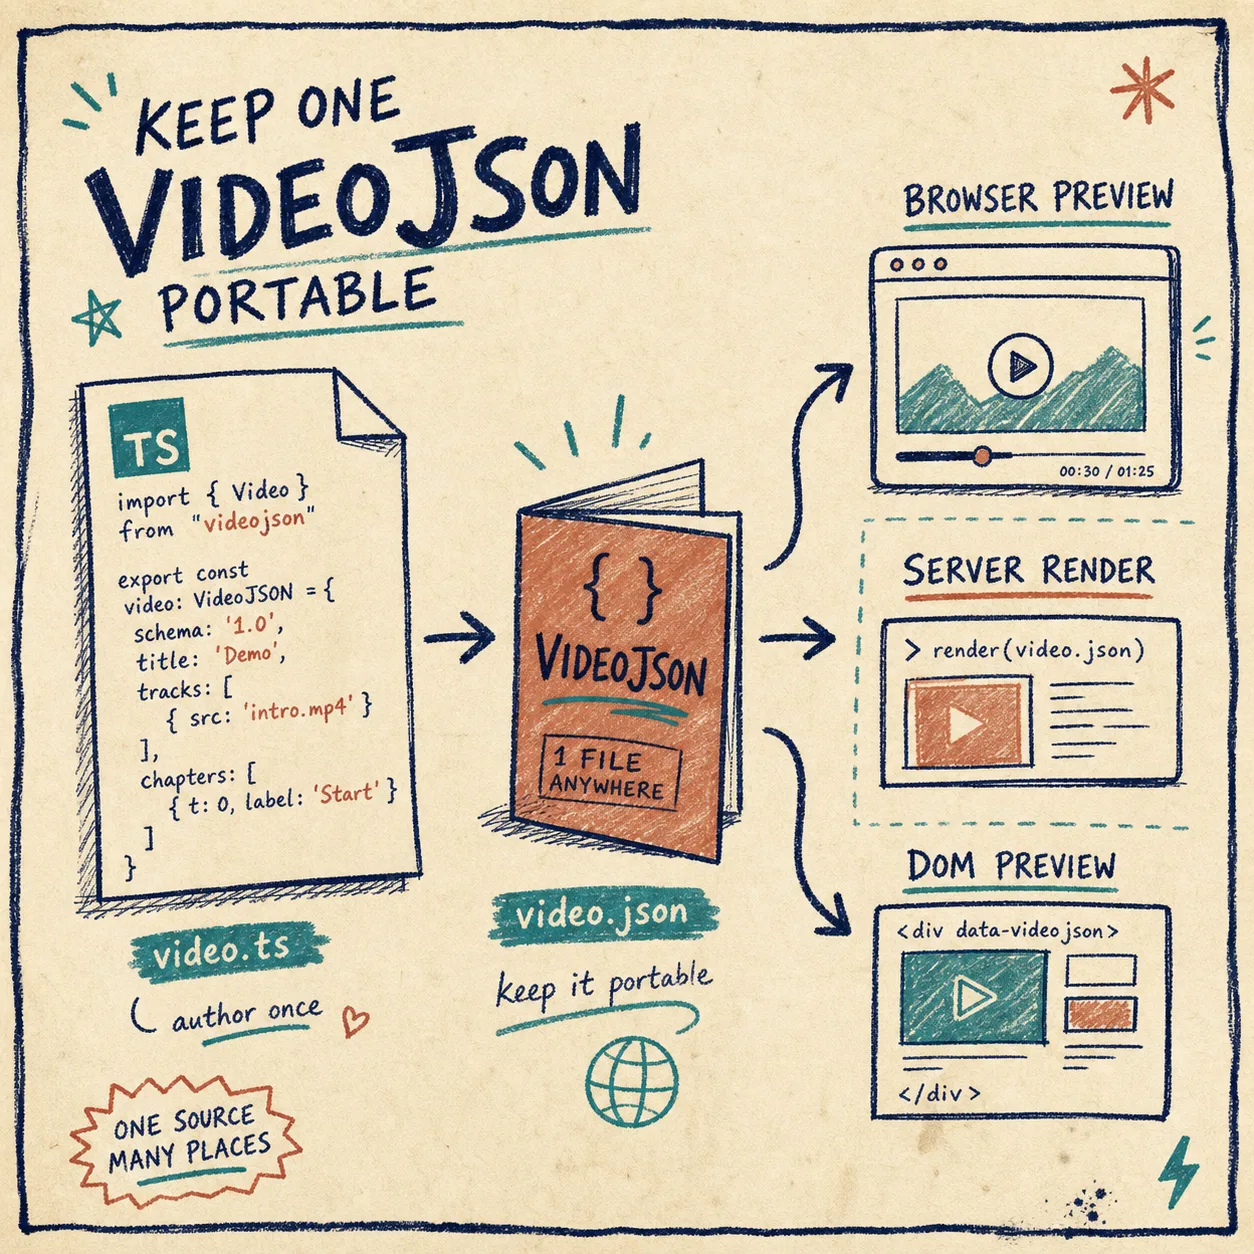 KEEP ONE
VIDEOJSON
PORTABLE
TS
import { Video }
from "videojson"
export const
video: VideoJSON = {
schema: '1.0',
title: 'Demo',
tracks: [
{ src: 'intro.mp4' }
],
chapters: [
{ t: 0, label: 'Start' }
]
}
video.ts
author once
ONE SOURCE
MANY PLACES
{ }
VIDEOJSON
1 FILE
ANYWHERE
video.json
keep it portable
BROWSER PREVIEW
00:30 / 01:25
SERVER RENDER
> render(video.json)
DOM PREVIEW
<div data-videojson>
</div>